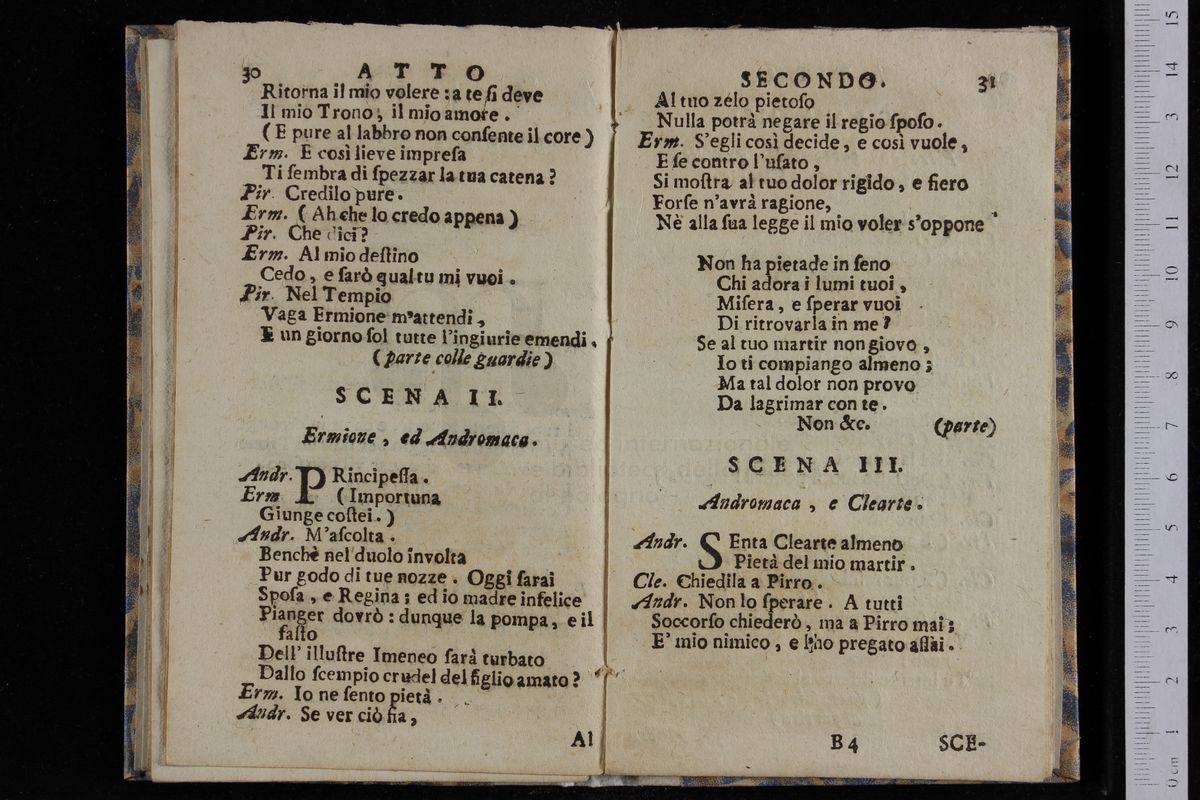 30 ATTO
Ritorna il mio volere : a te ſi deve
Il mio Trono, il mio amore .
( E pure al labbro non conſente il core )
Erm. E così lieve impreſa
Ti ſembra di ſpezzar la tua catena ?
Pir. Credilo pure .
Erm. ( Ah che lo credo appena )
Pir. Che dici ?
Erm. Al mio deſtino
Cedo , e ſarò qual tu mi vuoi .
Pir. Nel Tempio
Vaga Ermione m'attendi ,
E un giorno ſol tutte l'ingiurie emendi .
( parte colle guardie )
SCENA II.
Ermione , ed Andromaca .
Andr. PRincipeſſa .
Erm ( Importuna
Giunge coſtei . )
Andr. M'aſcolta .
Benchè nel duolo involta
Pur godo di tue nozze . Oggi ſarai
Spoſa , e Regina ; ed io madre infelice
Pianger dovrò : dunque la pompa , e il
faſto
Dell' illuſtre Imeneo ſarà turbato
Dallo ſcempio crudel del figlio amato ?
Erm. Io ne ſento pietà .
Andr. Se ver ciò ſia ,
Al
SECONDO. 31
Al tuo zelo pietoſo
Nulla potrà negare il regio ſpoſo .
Erm. S'egli così decide , e così vuole ,
E ſe contro l'uſato ,
Si moſtra al tuo dolor rigido , e fiero
Forſe n'avrà ragione,
Nè alla ſua legge il mio voler s'oppone
Non ha pietade in ſeno
Chi adora i lumi tuoi ,
Miſera , e ſperar vuoi
Di ritrovarla in me ?
Se al tuo martir non giovo ,
Io ti compiango almeno ;
Ma tal dolor non provo
Da lagrimar con te .
Non &c. (parte)
SCENA III.
Andromaca , e Clearte .
Andr. SEnta Clearte almeno
Pietà del mio martir .
Cle. Chiedila a Pirro .
Andr. Non lo ſperare . A tutti
Soccorſo chiederò , ma a Pirro mai ;
E' mio nimico , e l'ho pregato aſſai .
B 4 SCE-
0 cm 1 2 3 4 5 6 7 8 9 10 11 12 3 14 15